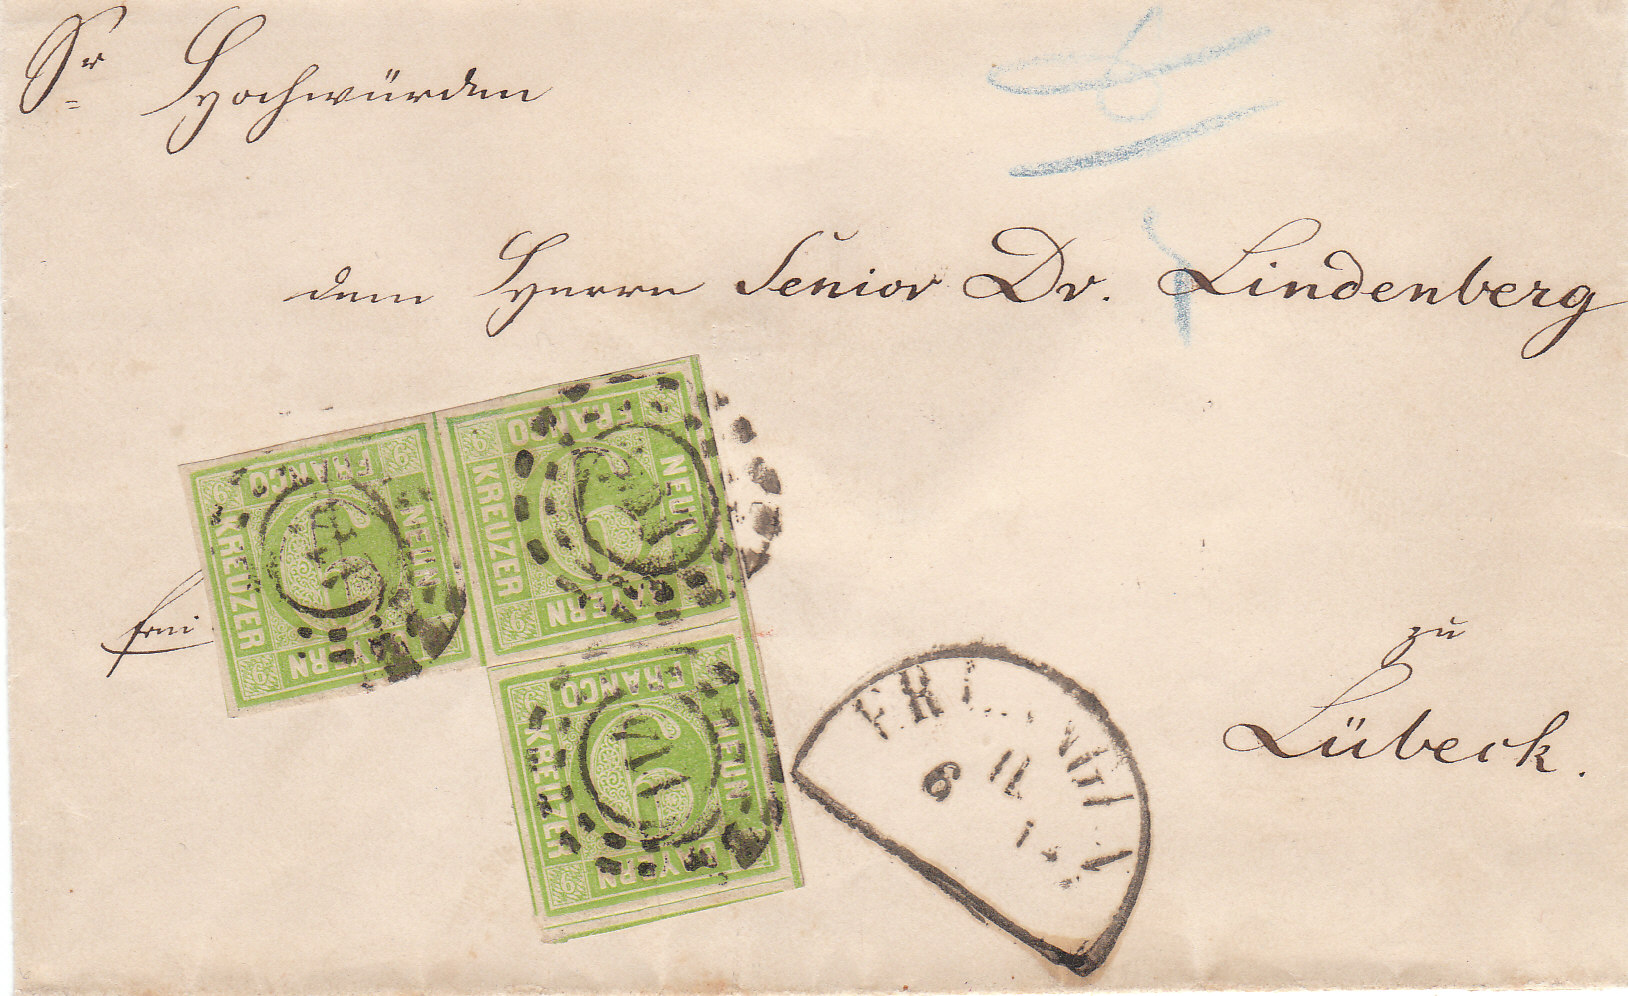 Sr Hochwürden
dem Herrn Senior Dr. Lindenberg
frei
zu
Lübeck.
FRANCO
NEUN
KREUZER
BAYERN
9
FRANCO
NEUN
KREUZER
BAYERN
9
FRANCO
NEUN
KREUZER
BAYERN
9
6 11